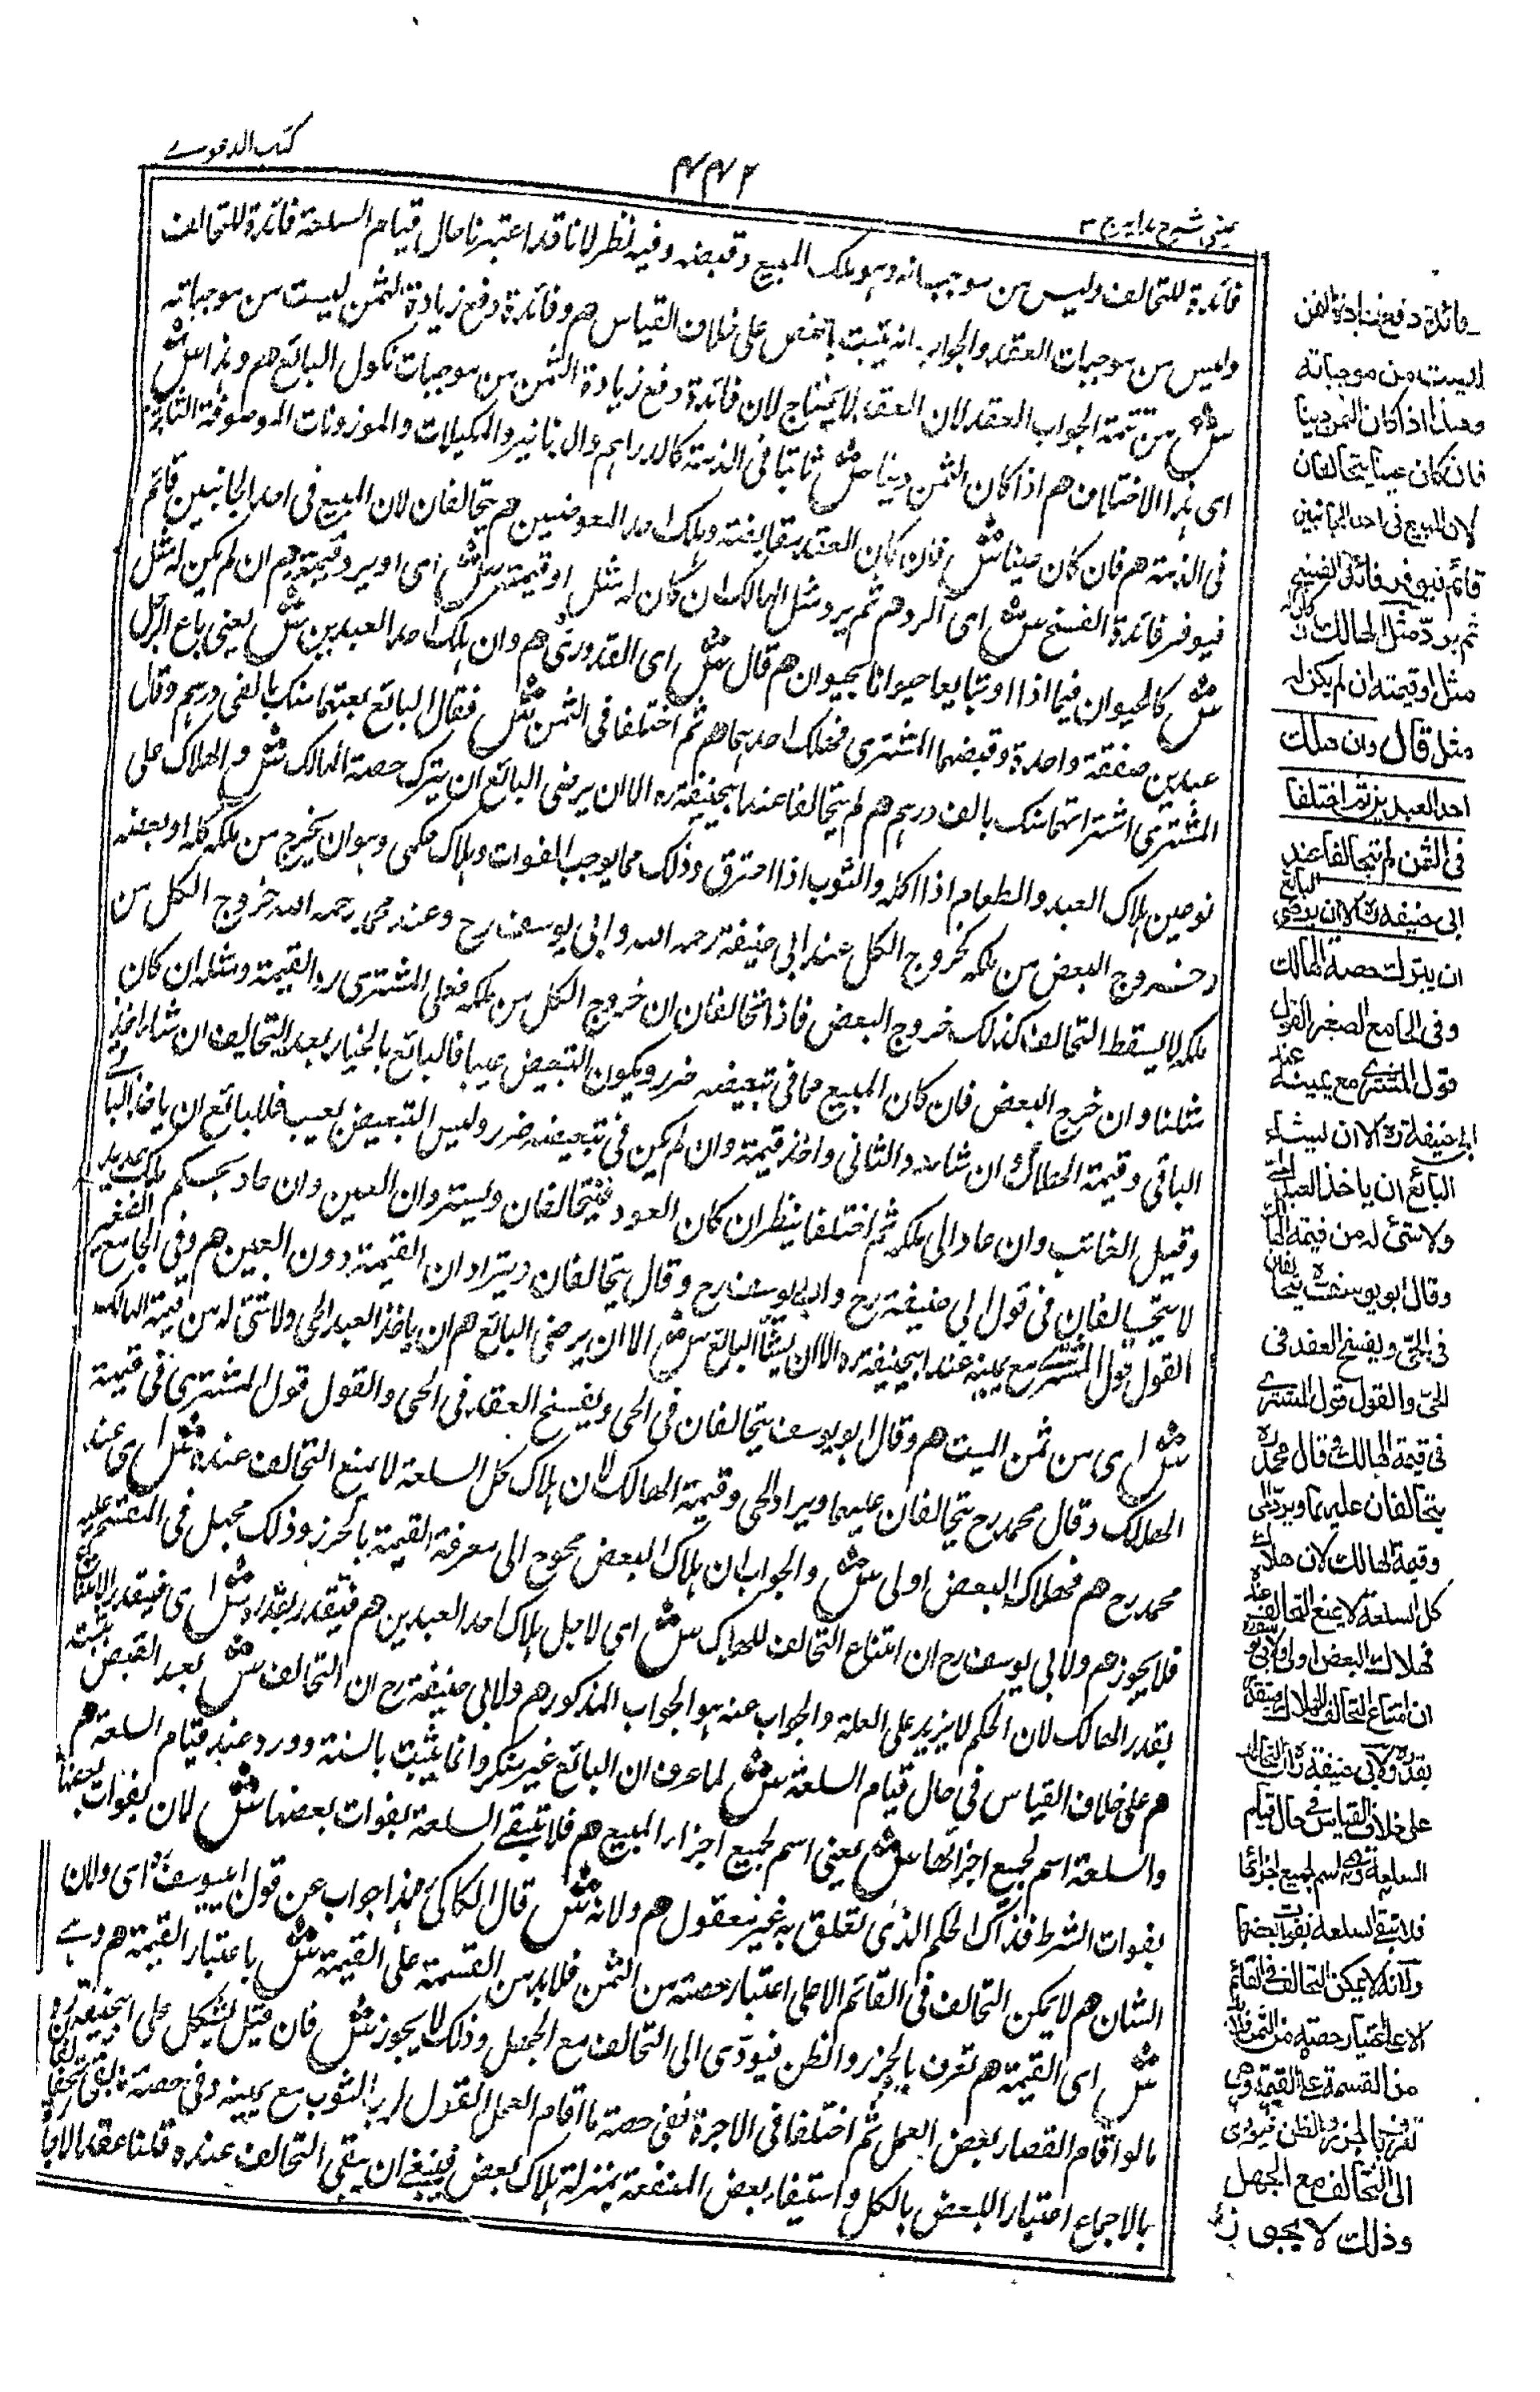 كتاب الدعوے
٤٤٢
عينى شرح هدايه ج ٣
فائدة للتحالف وليس من موجباته وهو ملك المبيع وقبضه وفيه نظر لانا قد اعتبرنا حال قيام السلعة فائدة للتحالف
وليس من موجبات العقد والجواب انه يثبت بالنص على خلاف القياس هم وفائدة دفع زيادة الثمن ليست من موجباته
ش من تتمة الجواب العقد لان العقد لا يحتاج لان فائدة دفع زيادة الثمن من موجبات نكول البائع هم وهذا ش
اى هذا الاختلاف هم اذا كان الثمن دينا ش ثابتا فى الذمة كالدراهم والدنانير والمكيلات والموزونات الموصوفة الثابتة
فى الذمة هم فان كان عينا ش فان كان العقد مقايضة وهلك احد العوضين هم يتحالفان لان المبيع فى احد الجانبين قائم
فيوفر فائدة الفسخ ش اى الرد هم ثم يرد مثل الهالك ان كان له مثل او قيمته ش اى او يرد قيمته هم ان لم يكن له مثل
ش كالحيوان فيما اذا تبايعا حيوانا بحيوان هم قال ش اى القدورى هم وان هلك احد العبدين ش يعنى باع الرجل
عبدين صفقة واحدة وقبضهما المشترى فهلك احدهما هم ثم اختلفا فى الثمن ش فقال البائع بعتهما منك بالفى درهم وقال
المشترى اشتريتهما منك بالف درهم هم لم يتحالفا عند ابيحنيفة ره الا ان يرضى البائع ان يترك حصة الهالك ش والهلاك على
نوعين هلاك العبد والطعام اذا اكله والثوب اذا احترق وذلك مما يوجب الفوات وهلاك حكمى وهو ان يخرج من ملكه كله او بعضه
وخروج البعض من ملكه كخروج الكل عند ابى حنيفة رحمه الله وابى يوسف رح وعند محمد رحمه الله خروج الكل من
ملكه لا يسقط التحالف كذلك خروج البعض فاذا تحالفان ان خروج الكل من ملكه فعلى المشترى رد القيمة ومثله ان كان
مثلنا وان خرج البعض فان كان المبيع مما فى تبعيضه ضرر ويكون التبعيض عيبا فالبائع بالخيار بعد التحالف ان شاء اخذ
الباقى وقيمة الهالك ان شاء رد الثانى واخذ قيمته وان لم يكن فى تبعيضه ضرر وليس التبعيض بعيب فللبائع ان ياخذ الباقے
وقيل الغائب وان عاد الى ملكه ثم اختلفا ينظر ان كان العود فيتحالفان ويستردان العين وان عاد بحكم ملك جديد
لا يتحالفان فى قول ابى حنيفة رح وابى يوسف رح وقال يتحالفان ويترادان القيمة دون العين هم وفى الجامع الصغير
القول قول المشترى مع يمينه عند ابيحنيفة ره الا ان يشاء البائع ش الا ان يرضى البائع هم ان ياخذ العبد الحى ولا شئ له من قيمة الهالك
ش اى من ثمن الميت هم وقال ابو يوسف يتحالفان فى الحى ويفسخ العقد فى الحى والقول قول المشترى فى قيمة
الهالك وقال محمد رح يتحالفان عليهما ويرد الحى وقيمة الهالك لان هلاك كل السلعة لا يمنع التحالف عنده ش اى عند
محمد رح هم فهلاك البعض اولى ش والجواب ان هلاك البعض محوج الى معرفة القيمة بالحرز وذلك مجهل فى المقسم عليه
فلا يجوز هم ولابى يوسف رح ان امتناع التحالف للهلاك ش اى لاجل هلاك احد العبدين هم فيتقدر بقدره ش اى فيتقدر الامتناع
بقدر الهالك لان الحكم لا يزيد على العلة والجواب عنه هو الجواب المذكور هم ولابى حنيفة رح ان التحالف ش بعد القبض يثبت
هم على خلاف القياس فى حال قيام السلعة ش لما عرف ان البائع غير منكر وانما يثبت بالسنة وورد عند قيام السلعة هم
والسلعة اسم لجميع اجزائها ش يعنى اسم لجميع اجزاء المبيع هم فلا تبقے السلعة بفوات بعضها ش لان بفوات بعضها
بفوات الشرط فذاك الحكم الذى تعلق به غير معقول هم ولانه ش قال الكاكى هذا جواب عن قول ابى يوسف ره اى ولان
الشان هم لا يمكن التحالف فى القائم الا على اعتبار حصته من الثمن فلابد من القسمة على القيمة ش باعتبار القيمة هم وهے
ش اى القيمة هم تعرف بالحزر والظن فيؤدى الى التحالف مع الجهل وذلك لا يجوز ش فان قيل يشكل على ابيحنيفة ره
ما لو اقام القصار بعض العمل ثم اختلفا فى الاجرة ففى حصة ما اقام العمل القول لرب الثوب مع يمينه وفى حصة ما بقى تحالفا
بالاجماع اعتبارا للبعض بالكل واستيفاء بعض المنفعة بمنزلة هلاك بعض فينبغے ان يبقى التحالف عنده قلنا عقد الاجارة
فائدة دفع زيادة الثمن
ليست من موجباته
وهذا اذا كان الثمن دينا
فان كان عينا يتحالفان
لان المبيع فى احد الجانبين
قائم فيوفر فائدة الفسخ
ثم يرد مثل الهالك ان كان له
مثل او قيمته ان لم يكن له
مثل قال وان هلك
احد العبدين ثم اختلفا
فى الثمن لم يتحالفا عند
ابى حنيفة ره الا ان يرضى البائع
ان يترك حصة الهالك
وفى الجامع الصغير القول
قول المشترى مع يمينه عند
ابى حنيفة ره الا ان يشاء
البائع ان ياخذ العبد الحى
ولا شئ له من قيمة الهالك
وقال ابو يوسف ره يتحالفان
فى الحى ويفسخ العقد فى
الحى والقول قول المشترے
فى قيمة الهالك وقال محمد ره
يتحالفان عليهما ويرد الحى
وقيمة الهالك لان هلاك
كل السلعة لا يمنع التحالف عنده
فهلاك البعض اولى ولابى يوسف ره
ان امتناع التحالف للهلاك فيتقدر
بقدره ولابى حنيفة ره ان التحالف
على خلاف القياس فى حال قيام
السلعة وهى اسم لجميع اجزائها
فلا تبقى السلعة بفوات بعضها
ولانه لا يمكن التحالف فى القائم
الا على اعتبار حصته من الثمن فلابد
من القسمة على القيمة وهى
تعرف بالحزر والظن فيؤدى
الى التحالف مع الجهل
وذلك لا يجوز